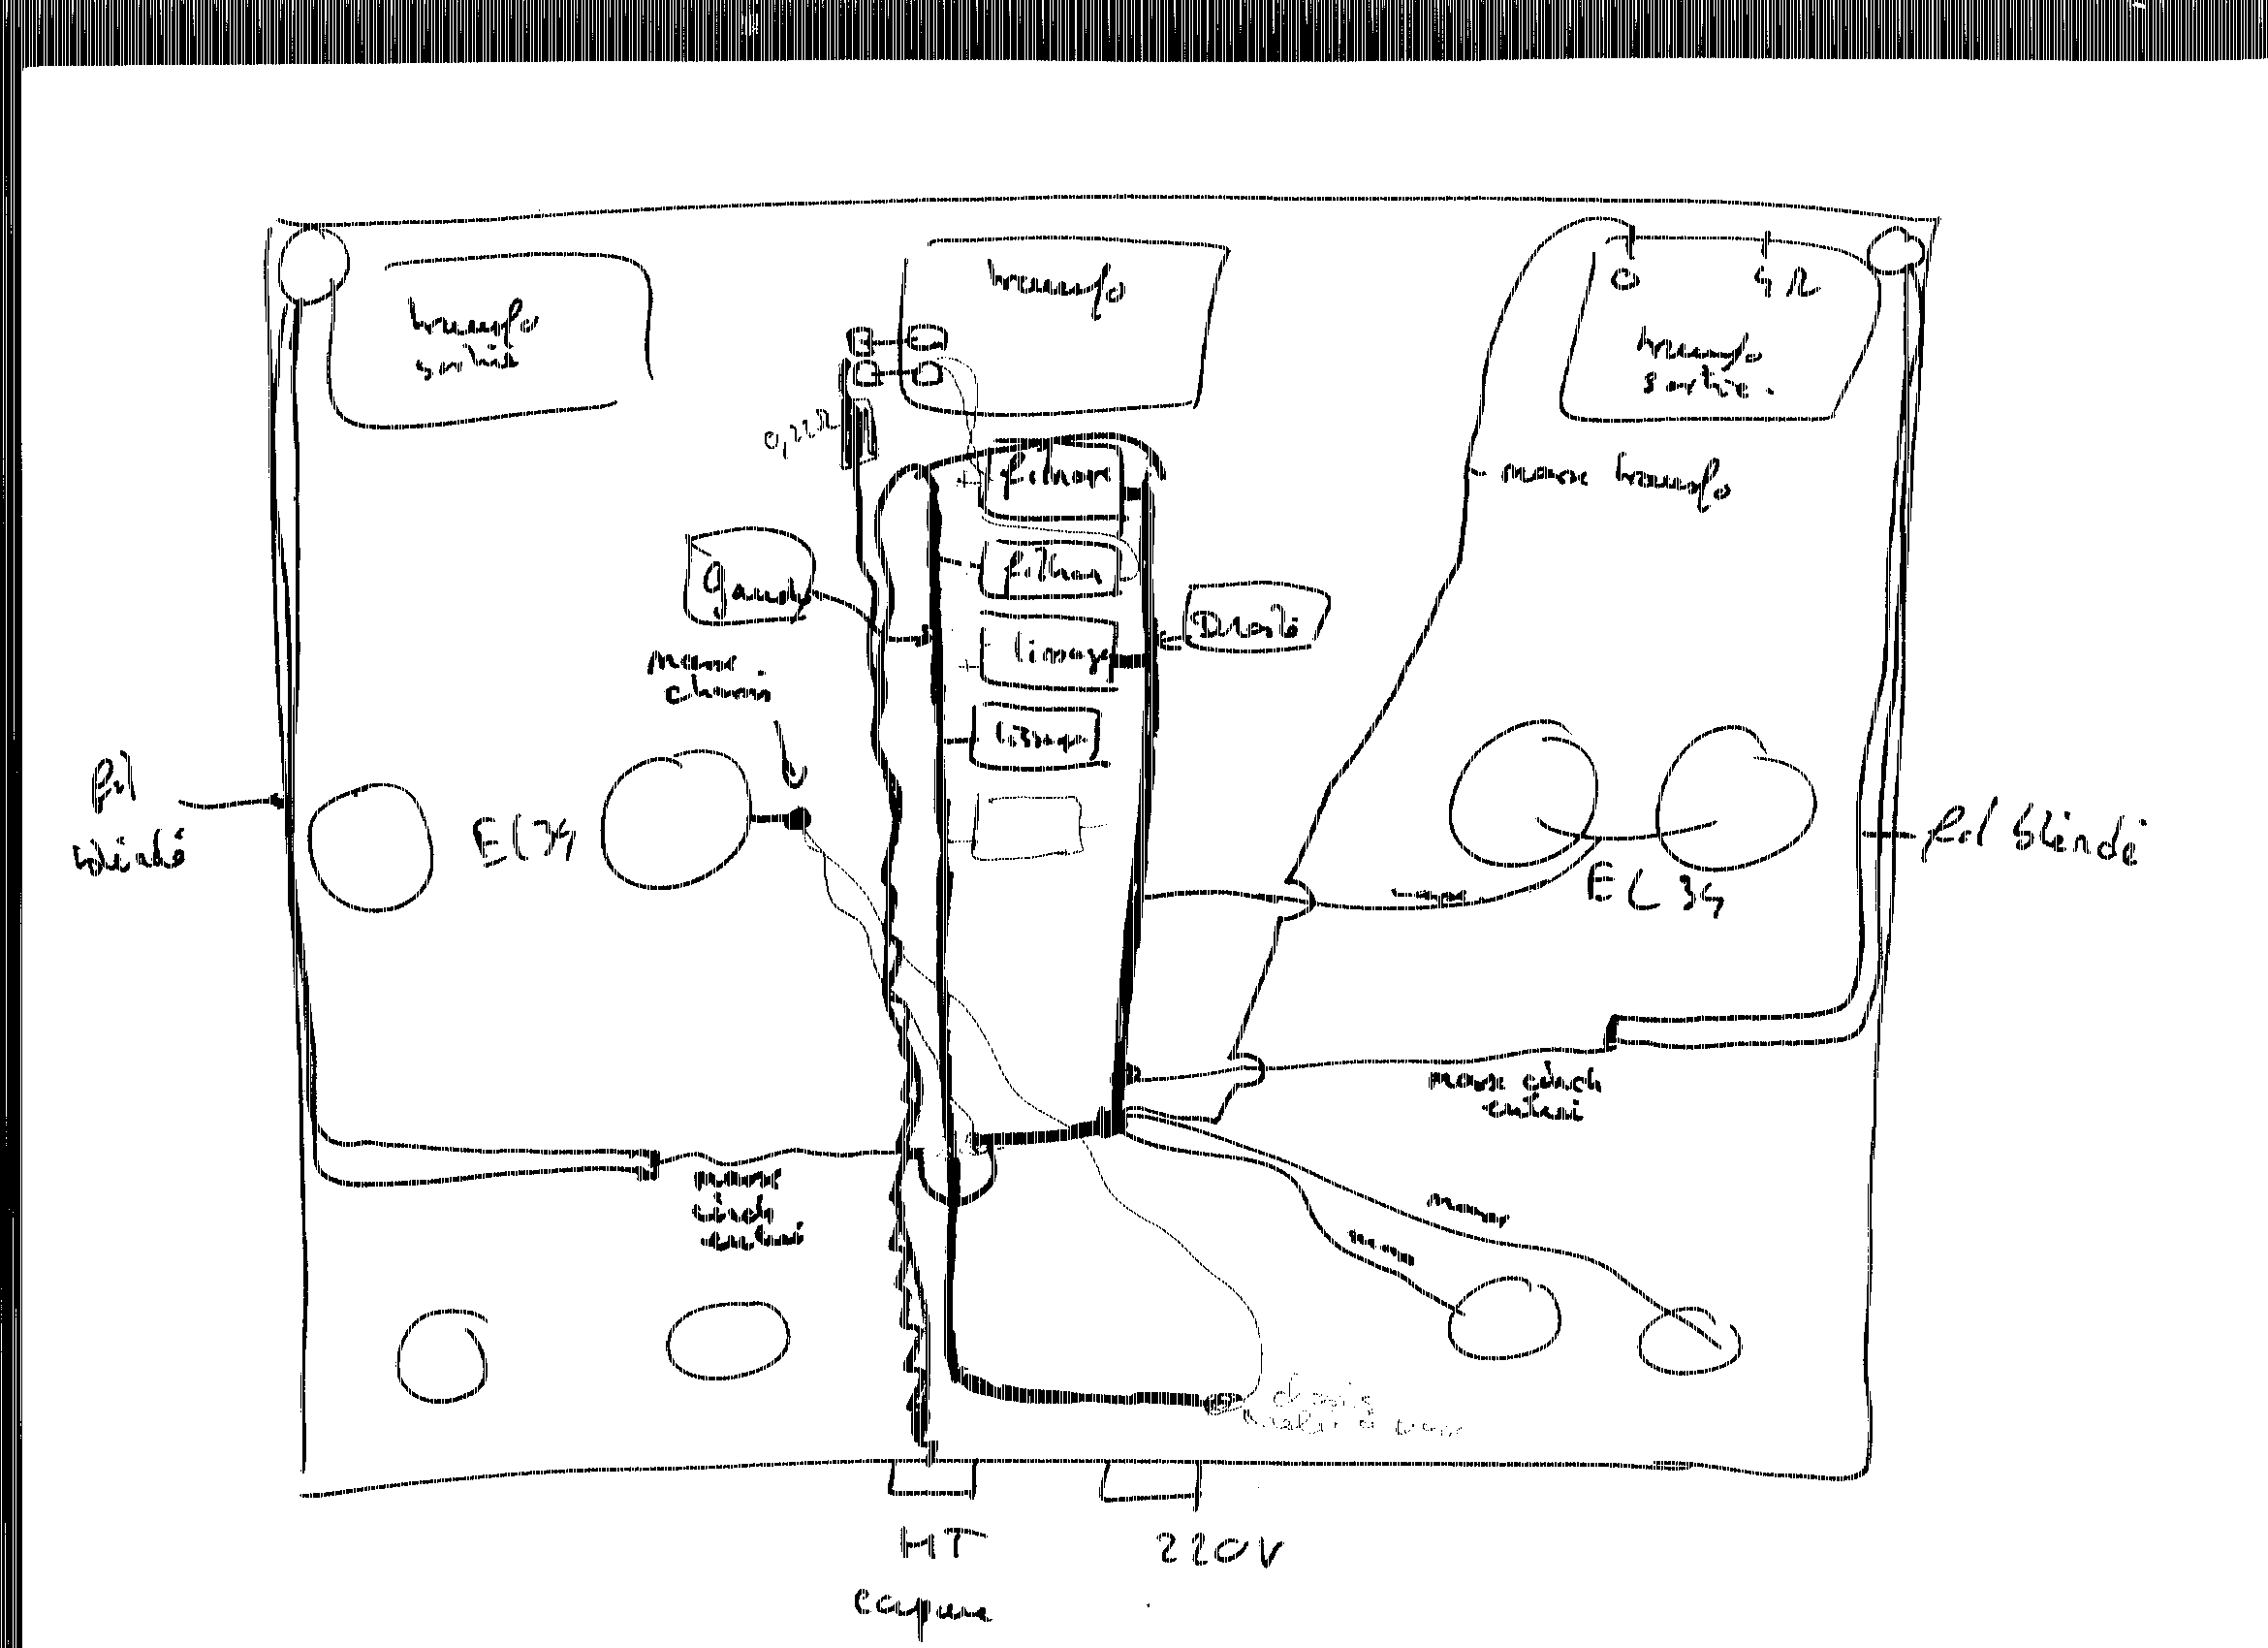 transfo
sortie
transfo
O 4Ω
transfo
sortie.
0,22Ω
+ filtrage
masse transfo
filtrage
Gauche
+ lissage
Droite
masse
chassis
lissage
fil
blindé
EL34
fil blindé
masse
EL34
masse cinch
entrée
masse
cinch
entrée
masse
masse
chassis
HT
220V